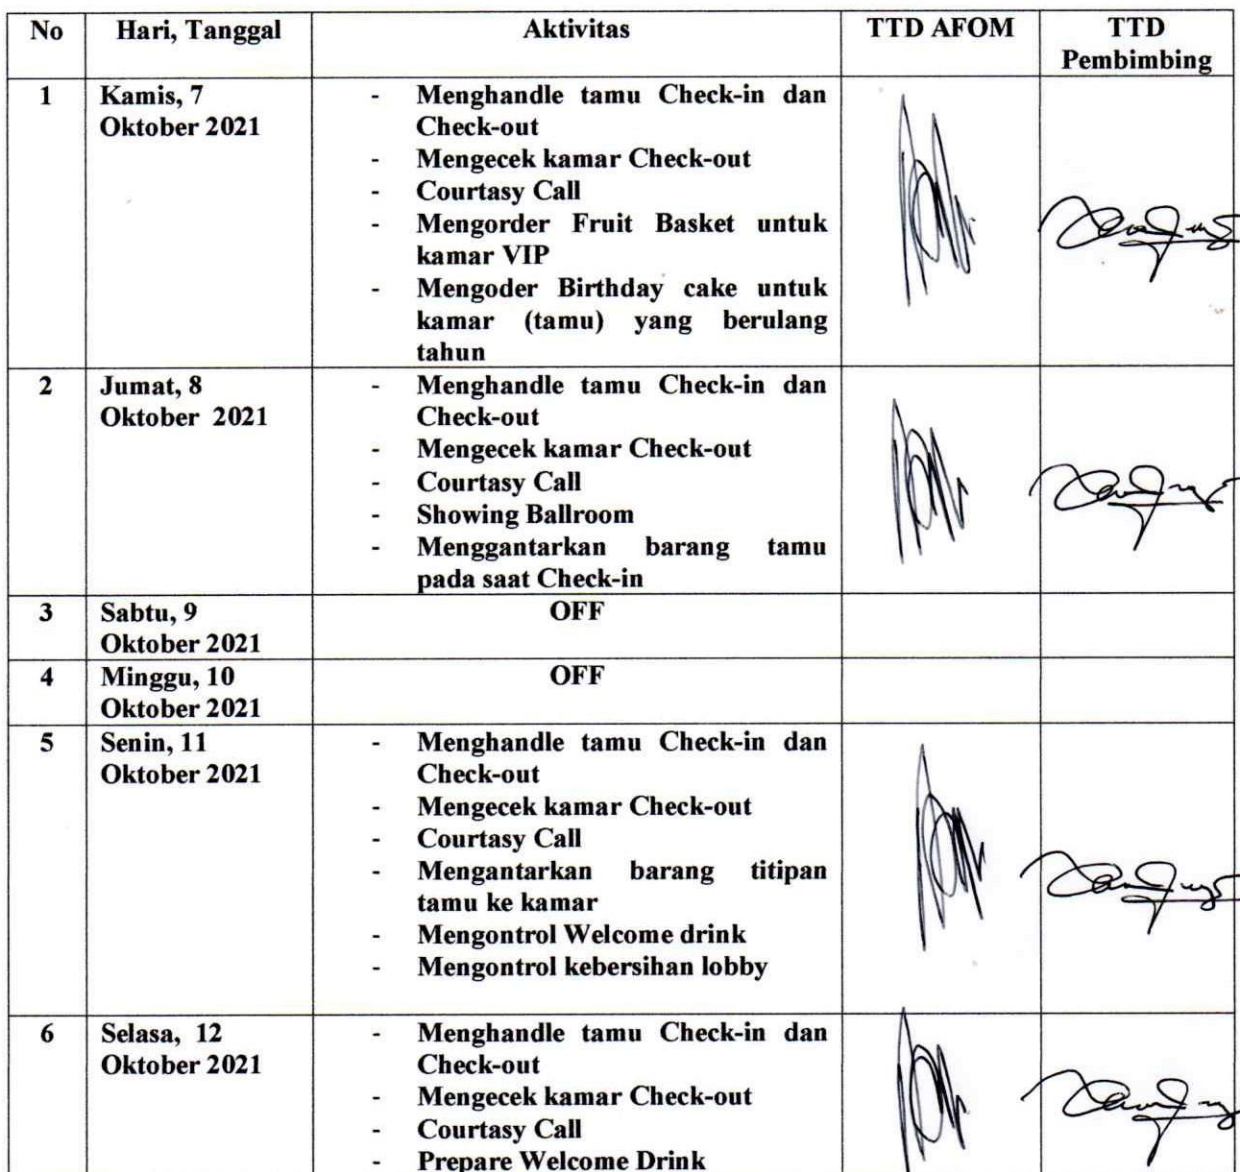 No Hari, Tanggal Aktivitas TTD AFOM TTD
Pembimbing
1 Kamis, 7
Oktober 2021
- Menghandle tamu Check-in dan
Check-out
- Mengecek kamar Check-out
- Courtasy Call
- Mengorder Fruit Basket untuk
kamar VIP
- Mengoder Birthday cake untuk
kamar (tamu) yang berulang
tahun
2 Jumat, 8
Oktober 2021
- Menghandle tamu Check-in dan
Check-out
- Mengecek kamar Check-out
- Courtasy Call
- Showing Ballroom
- Menggantarkan barang tamu
pada saat Check-in
3 Sabtu, 9
Oktober 2021
OFF
4 Minggu, 10
Oktober 2021
OFF
5 Senin, 11
Oktober 2021
- Menghandle tamu Check-in dan
Check-out
- Mengecek kamar Check-out
- Courtasy Call
- Mengantarkan barang titipan
tamu ke kamar
- Mengontrol Welcome drink
- Mengontrol kebersihan lobby
6 Selasa, 12
Oktober 2021
- Menghandle tamu Check-in dan
Check-out
- Mengecek kamar Check-out
- Courtasy Call
- Prepare Welcome Drink